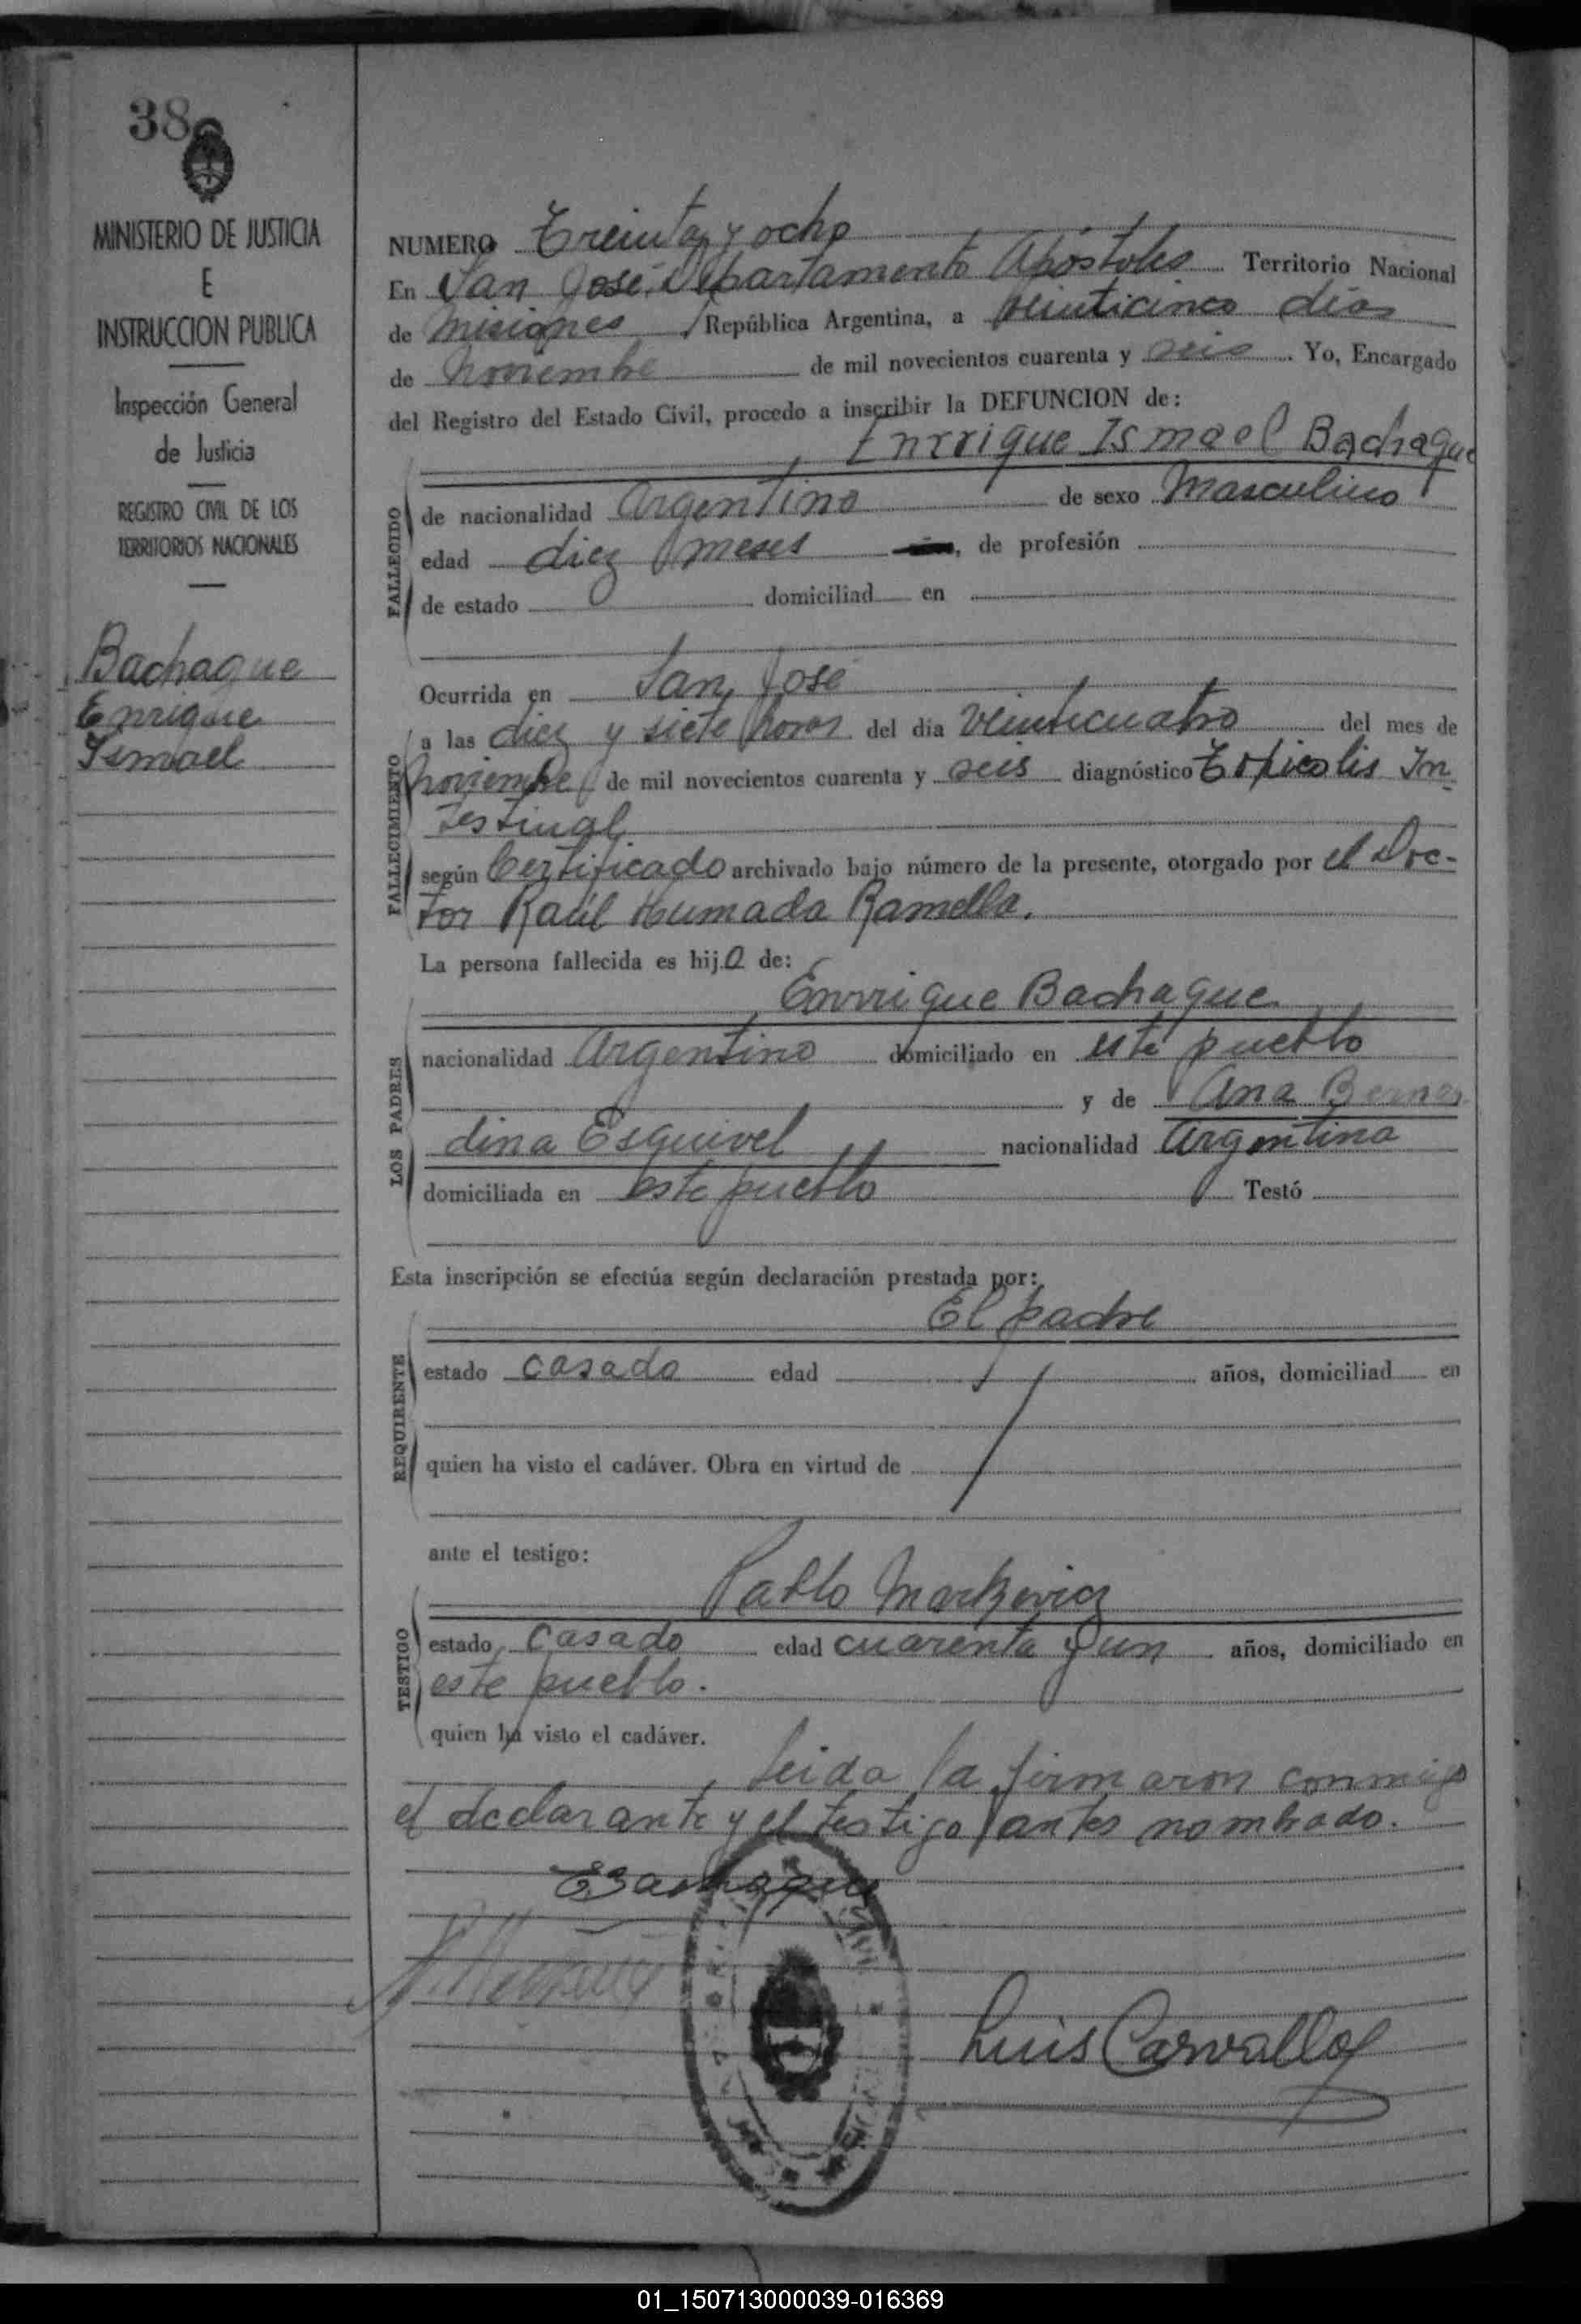 38
MINISTERIO DE JUSTICIA
E
INSTRUCCION PUBLICA
Inspección General
de Justicia
REGISTRO CIVIL DE LOS
TERRITORIOS NACIONALES
Bachaque
Enrique
Ismael
NUMERO Treinta y ocho
En San José, Departamento Apóstoles Territorio Nacional
de Misiones, República Argentina, a veinticinco dias
de Noviembre de mil novecientos cuarenta y seis. Yo, Encargado
del Registro del Estado Civil, procedo a inscribir la DEFUNCION de:
Enrrique Ismael Bachaque
FALLECIDO
de nacionalidad Argentino de sexo Masculino
edad diez meses, de profesión
de estado domiciliad en
Ocurrida en San José
FALLECIMIENTO
a las diez y siete horas del dia veinticuatro del mes de
Noviembre de mil novecientos cuarenta y seis diagnóstico In-
testinal
según Certificado archivado bajo número de la presente, otorgado por el Doc-
tor Raúl Humada Ramella.
La persona fallecida es hijo de:
Enrrique Bachaque
LOS PADRES
nacionalidad Argentino domiciliado en este pueblo
y de Ana Bernar
dina Esquivel nacionalidad Argentina
domiciliada en este pueblo Testó
Esta inscripción se efectúa según declaración prestada por:
El padre
REQUIRENTE
estado casado edad años, domiciliad en
quien ha visto el cadáver. Obra en virtud de
ante el testigo:
Pablo Markevicz
TESTIGO
estado casado edad cuarenta y un años, domiciliado en
este pueblo.
quien ha visto el cadáver.
Leida la firmaron conmigo
el declarante y el testigo antes nombrado.
EBachaque
Luis Carvallo
01_150713000039-016369